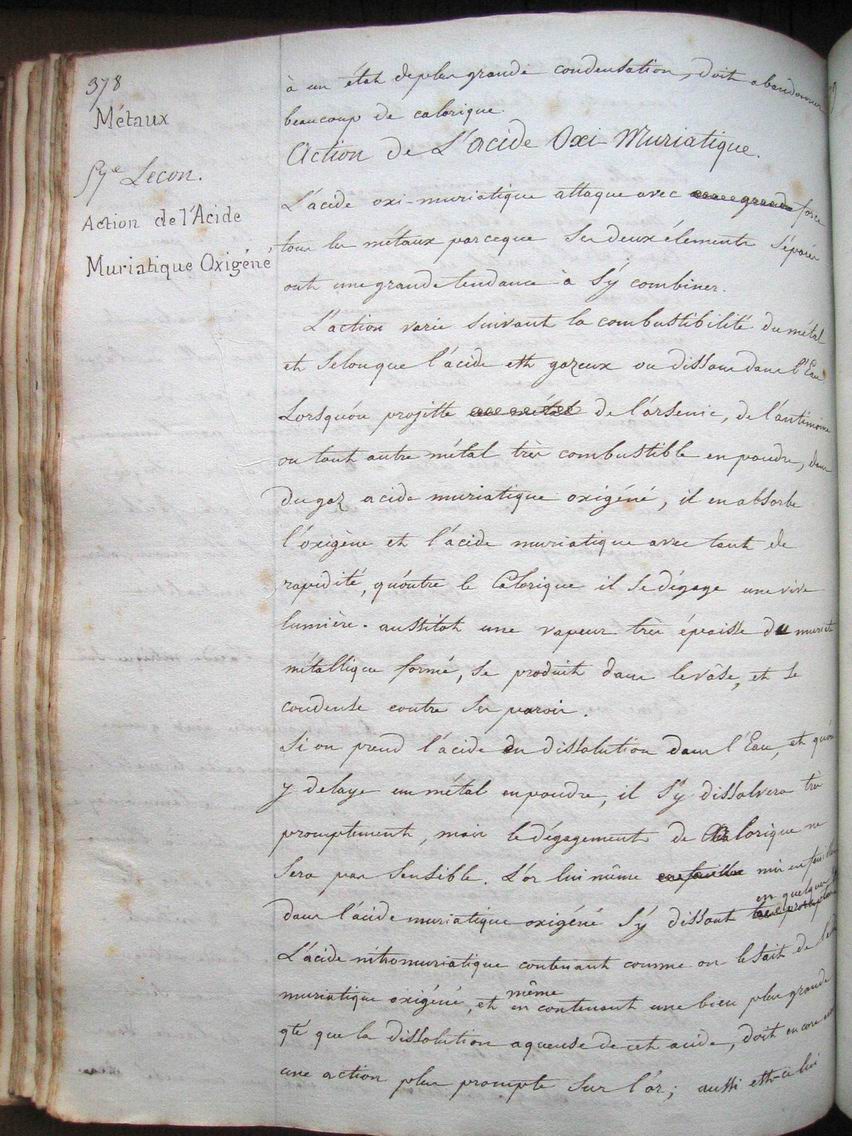 378
Métaux
57e Lecon.
Action de l'Acide
Muriatique Oxigéné
à un état de plus grande condensation, doit abandonner
beaucoup de calorique.
Action de L'acide Oxi-Muriatique.
L'acide oxi-muriatique attaque avec force
tous les métaux parceque ses deux élements séparés
ont une grande tendance à s'y combiner.
L'action varie suivant la combustibilité du métal
et selon que l'acide est gazeux ou dissous dans l'Eau
Lorsqu'on projitte de l'arsenic, de l'antimoine
ou tout autre métal très combustible en poudre, dans
du gaz acide muriatique oxigéné, il en absorbe
l'oxigène et l'acide muriatique avec tant de
rapidité, qu'outre le Calorique il se dégage une vive
lumière. aussitot une vapeur très épaisse du muriate
métallique formé, se produit dans le vâse, et se
condense contre ses parois.
Si on prend l'acide en dissolution dans l'Eau, et qu'on
y delaye un métal en poudre, il s'y dissolvera très
promptement, mais le dégagement de Calorique ne
sera pas sensible. L'or lui même mis en feuilles
dans l'acide muriatique oxigéné s'y dissout en quelques
L'acide nitromuriatique contenant comme on le sait de
muriatique oxigéné, et même en contenant une bien plus grande
qté que la dissolution aqueuse de cet acide, doit encore
une action plus prompte sur l'or; aussi est-ce lui